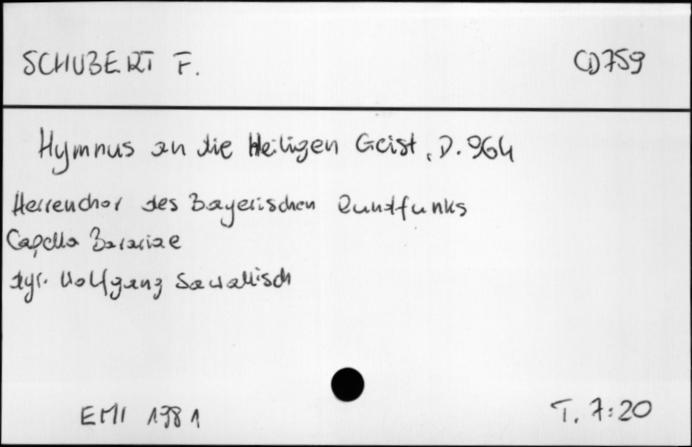 SCHUBERT F.
CD759
Hymnus an die Heiligen Geist, D. 964
Herrenchor des Bayerischen Rundfunks
Capella Bavariae
dyr. Wolfgang Sawallisch
EMI 1981
T. 7:20